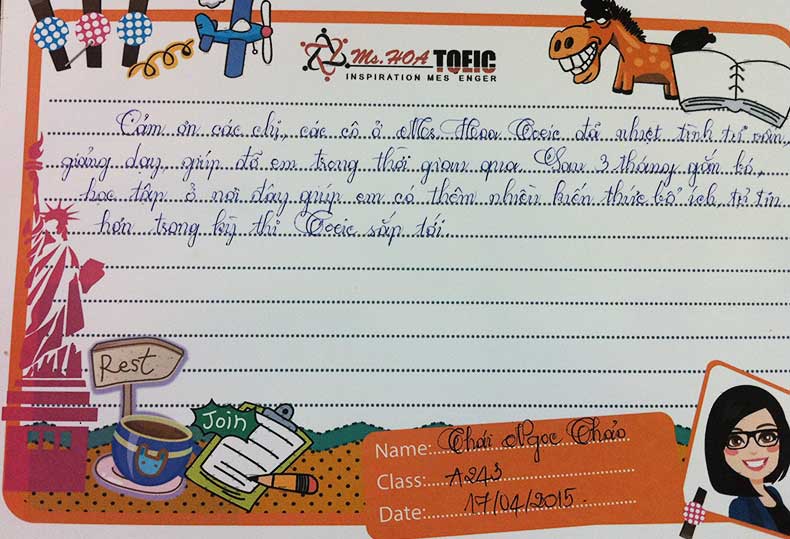 Ms. HOA TOEIC
INSPIRATION MES ENGER
Cảm ơn các chị, các cô ở Ms. Hoa Toeic đã nhiệt tình tư vấn,
giảng dạy, giúp đỡ em trong thời gian qua. Sau 3 tháng gắn bó,
học tập ở nơi đây giúp em có thêm nhiều kiến thức bổ ích, tự tin
hơn trong kỳ thi Toeic sắp tới.
Rest
Join
Name: Thái Ngọc Thảo
Class: A243
Date: 17/04/2015.